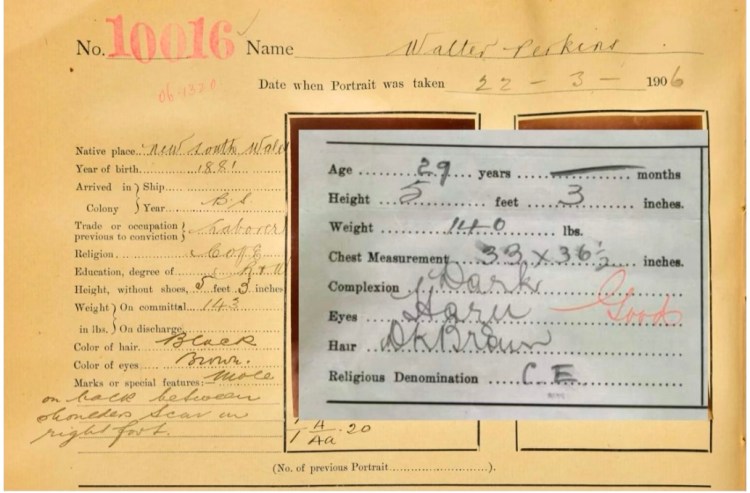 No. 10016 Name Walter Perkins
Date when Portrait was taken 22 - 3 - 1906
Native place. New South Wales
Year of birth. 1881
Arrived in } Ship
Colony } Year B.S
Trade or occupation } Laborer
previous to conviction }
Religion C of E
Education, degree of R + W
Height, without shoes, 5 feet 3 inches
Weight } On committal 143
in lbs. } On discharge
Color of hair. Black
Color of eyes Brown.
Marks or special features:— Mole
on back between
shoulders Scar on
right foot.
20
(No. of previous Portrait ).
Age 29 years — months
Height 5 feet 3 inches.
Weight 140 lbs.
Chest Measurement 33 x 36½ inches.
Complexion Dark
Eyes Good
Hair Dk Brown
Religious Denomination C. E.